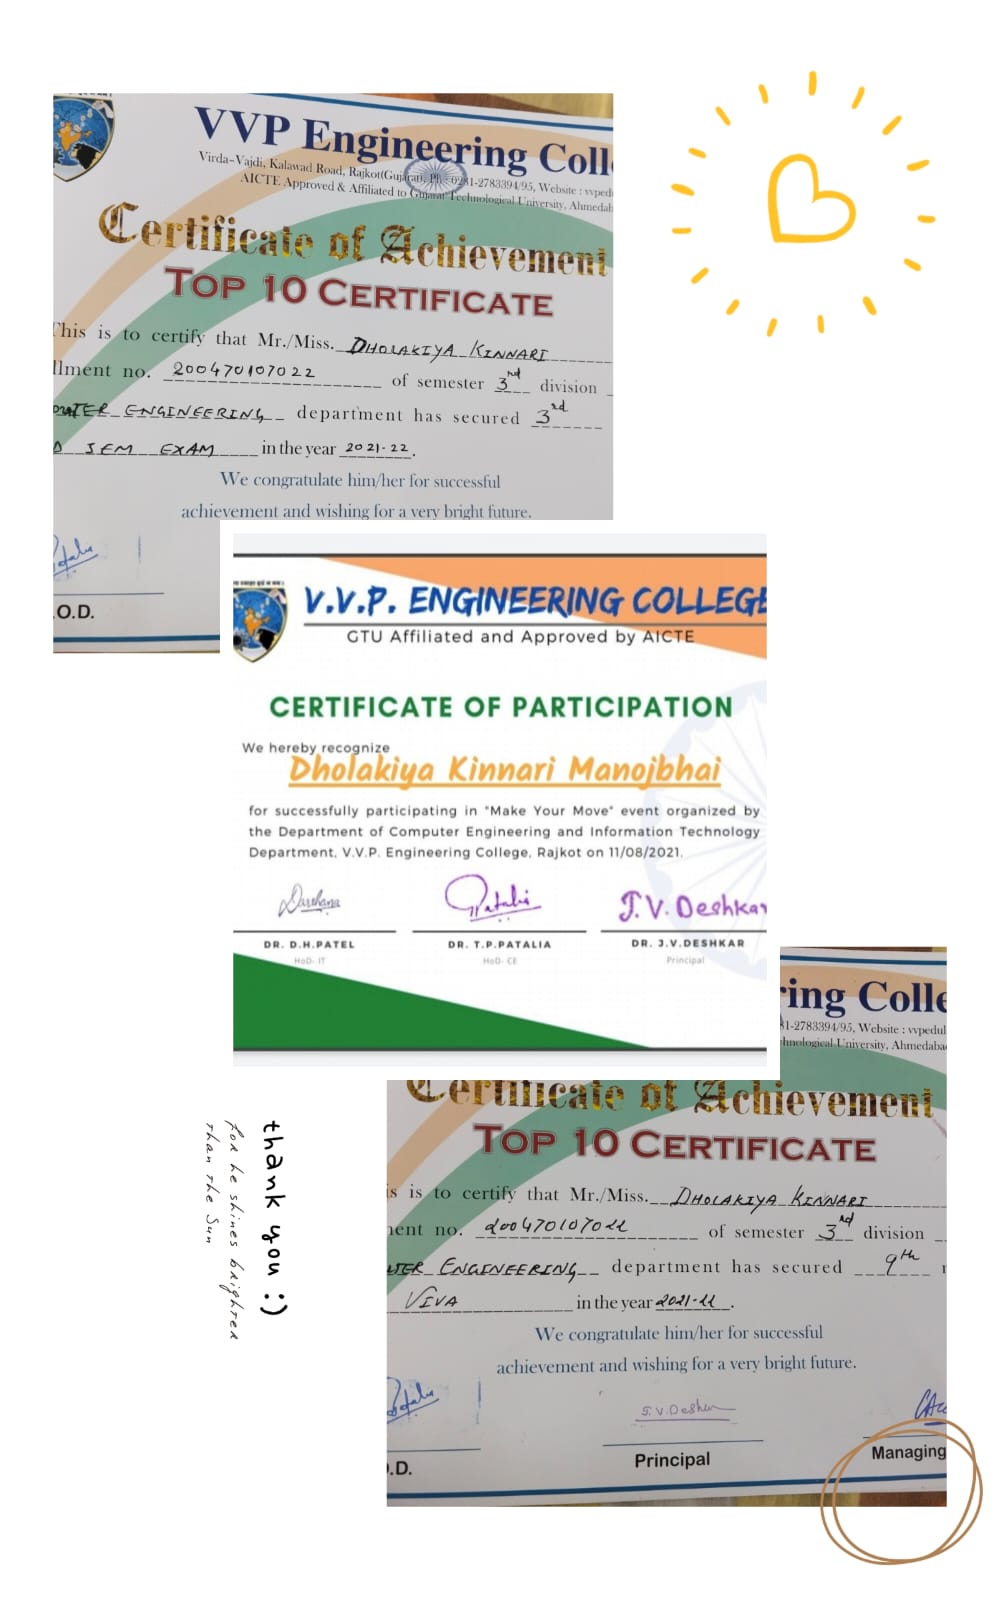 VVP Engineering Coll
Virda-Vajdi, Kalawad Road, Rajkot(Gujarat), Ph : 0281-2783394/95, Website : vvped
AICTE Approved & Affiliated to Gujarat Technological University, Ahmedab
Certificate of Achievement
TOP 10 CERTIFICATE
This is to certify that Mr./Miss. DHOLAKIYA KINNARI
llment no. 200470107022 of semester 3rd division
PUTER ENGINEERING department has secured 3rd
D SEM EXAM in the year 2021-22.
We congratulate him/her for successful
achievement and wishing for a very bright future.
.O.D.
V.V.P. ENGINEERING COLLEGE
GTU Affiliated and Approved by AICTE
CERTIFICATE OF PARTICIPATION
We hereby recognize
Dholakiya Kinnari Manojbhai
for successfully participating in "Make Your Move" event organized by
the Department of Computer Engineering and Information Technology
Department, V.V.P. Engineering College, Rajkot on 11/08/2021.
J.V. Deshkar
DR. D.H.PATEL DR. T.P.PATALIA DR. J.V.DESHKAR
HoD- IT HoD- CE Principal
ring Colle
81-2783394/95, Website : vvpedul
hnological University, Ahmedaba
Certificate of Achievement
TOP 10 CERTIFICATE
is is to certify that Mr./Miss. DHOLAKIYA KINNARI
ment no. 200470107022 of semester 3rd division
UTER ENGINEERING department has secured 9th
VIVA in the year 2021-22.
We congratulate him/her for successful
achievement and wishing for a very bright future.
J.V.Deshkar
.D. Principal Managing
thank you :)
for he shines brighter
than the sun